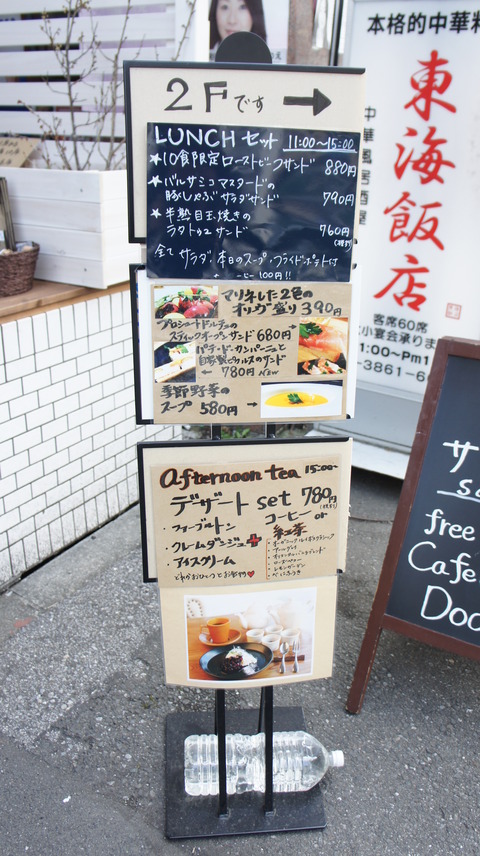 2Fです →
LUNCHセット 11:00~15:00
★10食限定ローストビーフサンド 880円
★バルサミコマスタードの
豚しゃぶサラダサンド 790円
★半熟目玉焼きの
ラタトゥユサンド 760円
(税別)
全て サラダ、本日のスープ、フライドポテト付
コーヒー100円!!
マリネした2色の
オリーヴ盛り 390円
プロシュートドルチェの
スティックオープンサンド 680円→
パテ・ド・カンパーニュと
自家製ピクルスのサンド
← 780円 NEW
季節野菜の
スープ 580円 →
afternoon tea 15:00~
デザート set 780円
(税別)
・フォンダートン
・クレームダンジュ
・アイスクリーム
どれかおひとつとお飲物♥
コーヒー or
紅茶
本格的中華料
東海飯店
中華風居酒屋
客席60席
小宴会承りま
1:00~Pm1
3861-6
サ
free
Cafe
Doo